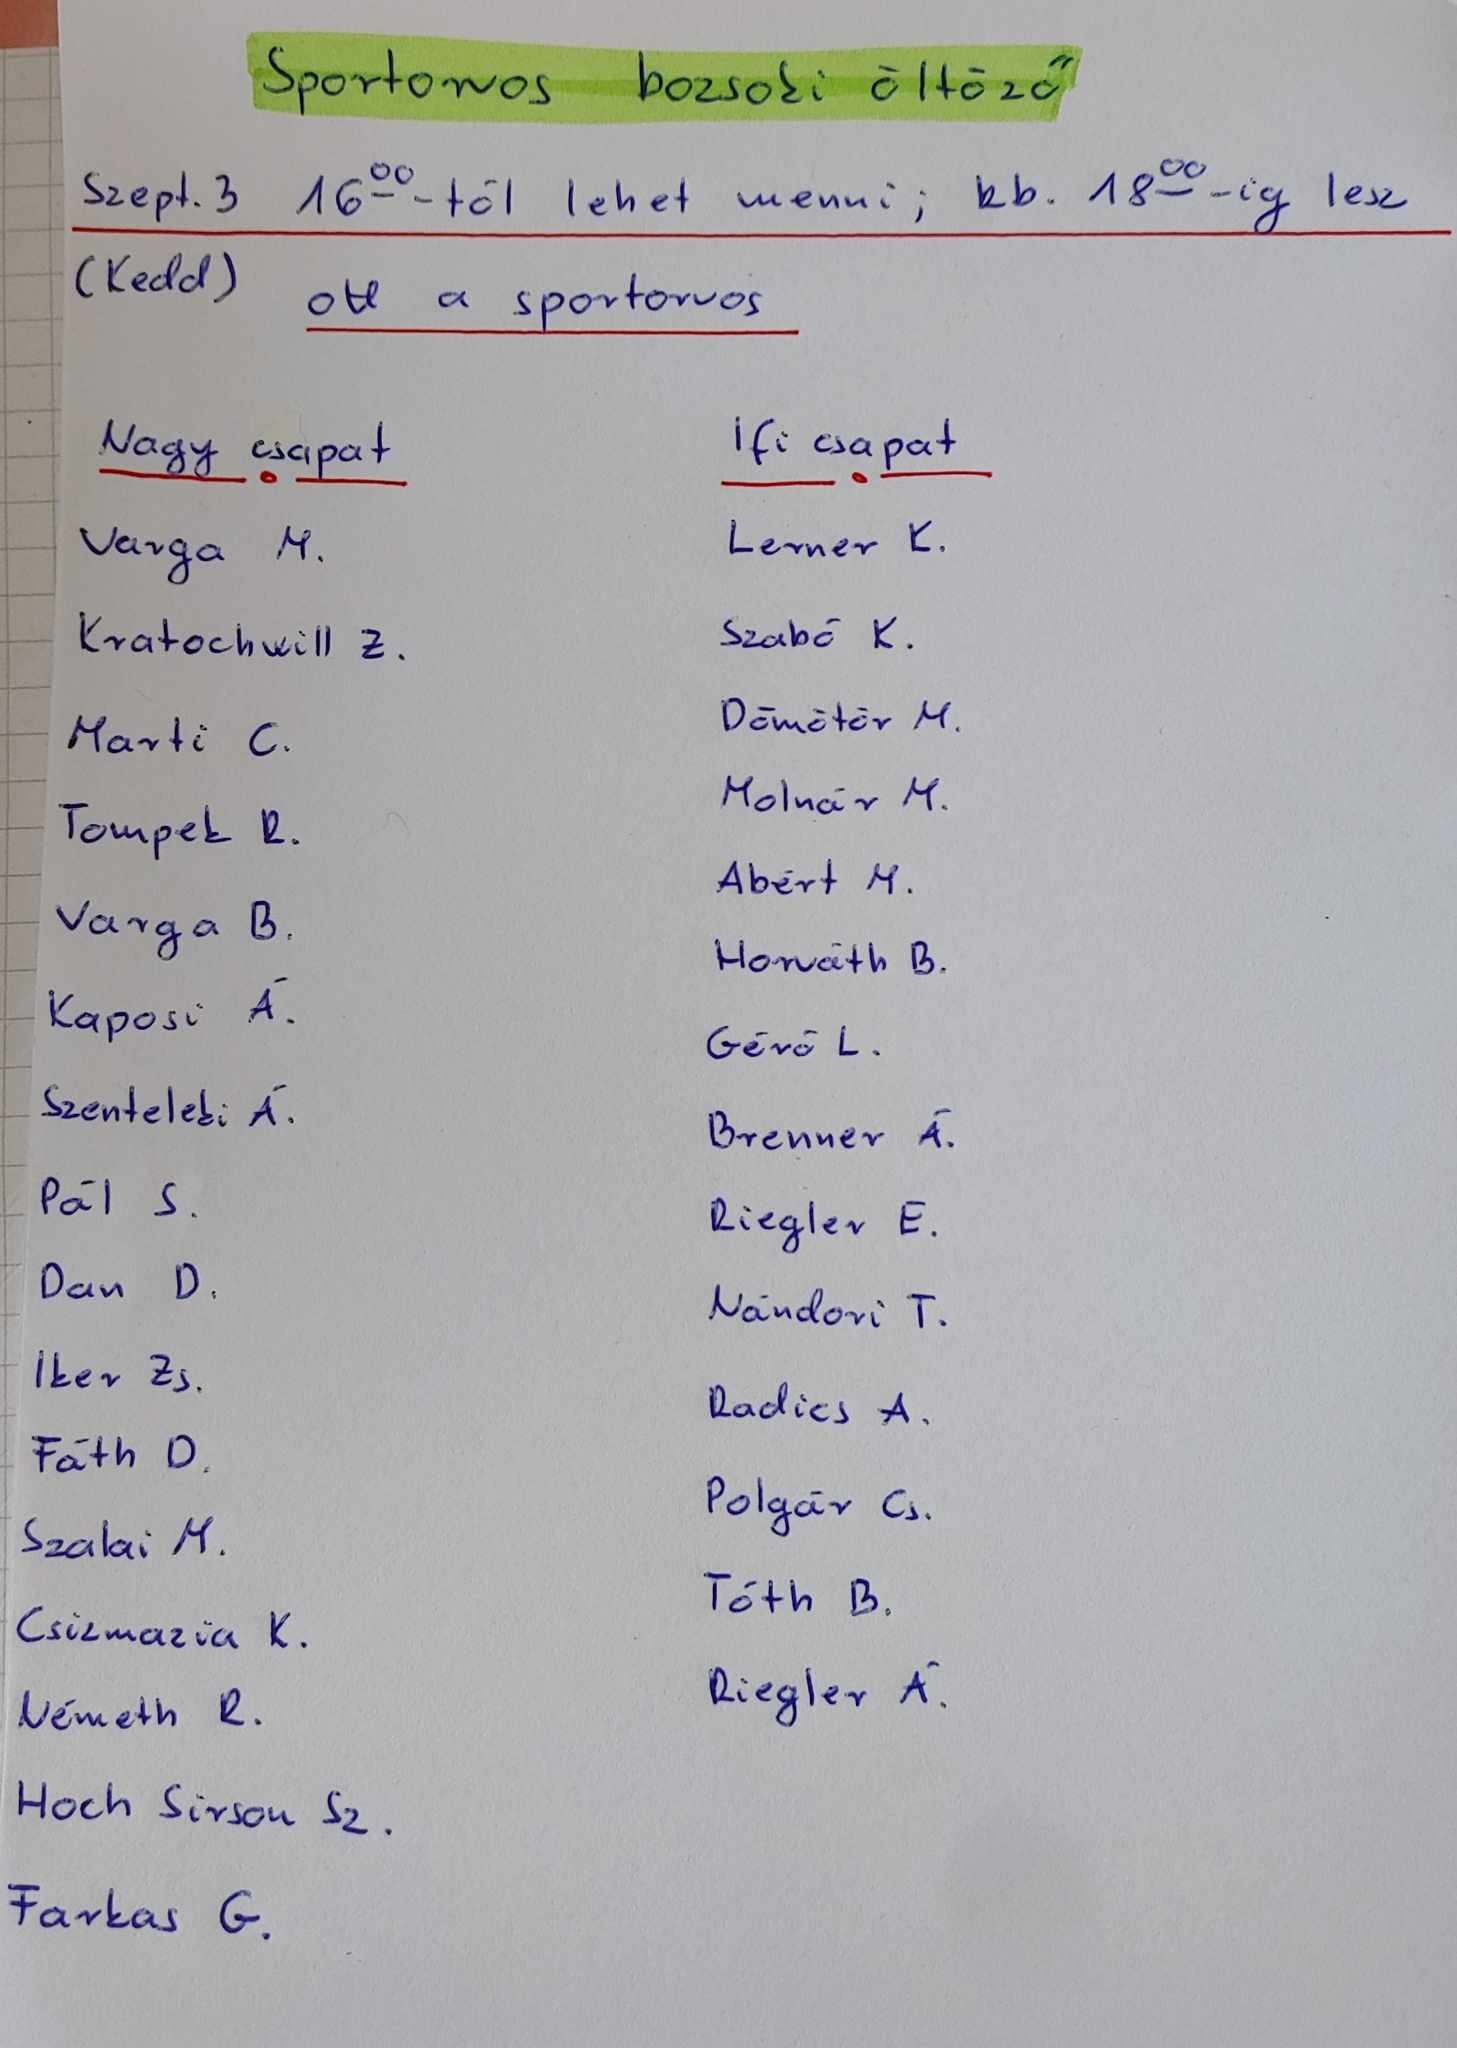 Sportorvos bozsoki öltöző
Szept. 3 16⁰⁰-tól lehet menni; kb. 18⁰⁰-ig lesz
(Kedd) ott a sportorvos
Nagy csapat
Varga M.
Kratochwill Z.
Marti C.
Tompek R.
Varga B.
Kaposi Á.
Szenteleki Á.
Pál S.
Dan D.
Iker Zs.
Fáth D.
Szalai M.
Csizmazia K.
Németh R.
Hoch Sirson Sz.
Farkas G.
Ifi csapat
Lerner K.
Szabó K.
Dömötör M.
Molnár M.
Abért M.
Horváth B.
Gérő L.
Brenner Á.
Riegler E.
Nándori T.
Radics A.
Polgár Cs.
Tóth B.
Riegler Á.